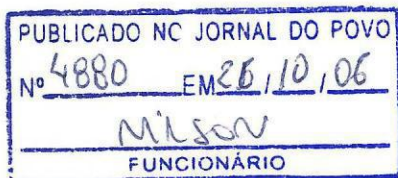 PUBLICADO NO JORNAL DO POVO
Nº 4880 EM 26/10/06
Nilson
FUNCIONÁRIO